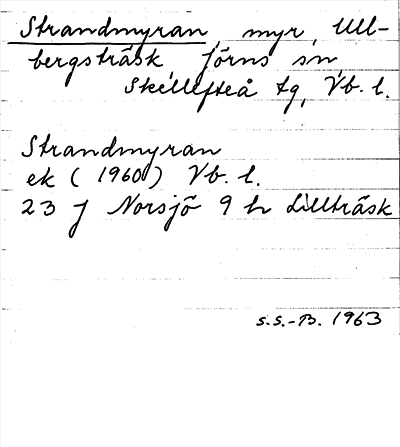 Strandmyran, myr, Ull-
bergsträsk Jörns sn,
Skellefteå tg, Vb. l.
Strandmyran
ek (1960) Vb. l.
23 J Norsjö 9 h Lillträsk
S.S.-B. 1963